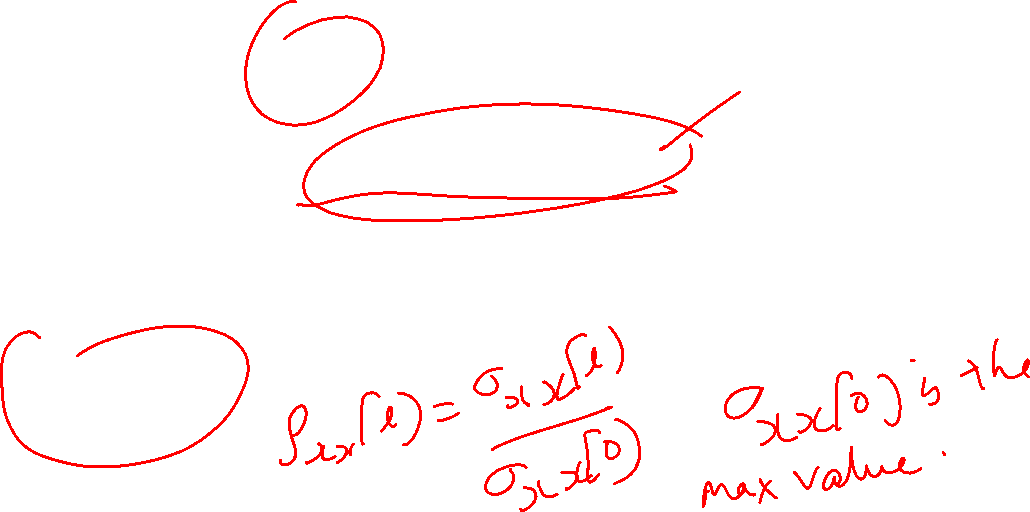 ρxx[l) = σxx[l) / σxx[0)
σxx[0) is the
max value.